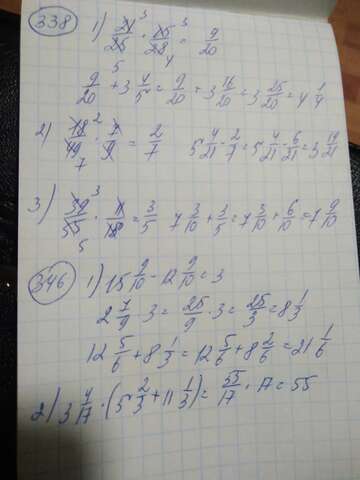 338 1) 21/25 · 15/28 = 9/20
9/20 + 3 4/5 = 9/20 + 3 16/20 = 3 25/20 = 4 1/4
2) 18/49 · 7/9 = 2/7 5 4/21 - 2/7 = 5 4/21 - 6/21 = 3 19/21
3) 39/55 · 11/13 = 3/5 7 3/10 + 3/5 = 7 3/10 + 6/10 = 7 9/10
346 1) 15 9/10 - 12 9/10 = 3
2 7/9 · 3 = 25/9 · 3 = 25/3 = 8 1/3
12 5/6 + 8 1/3 = 12 5/6 + 8 2/6 = 21 1/6
2) 3 4/17 · (5 2/3 + 11 1/3) = 55/17 · 17 = 55